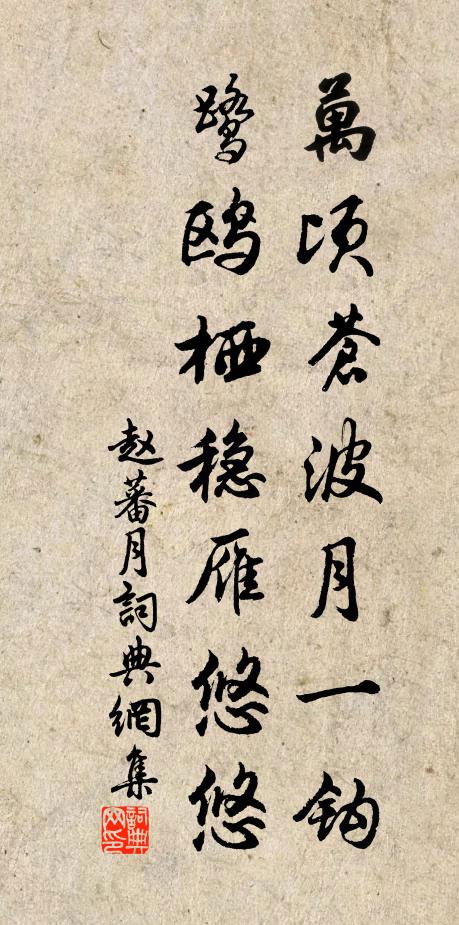 萬頃蒼波月一鈎
鷺鸥栖穏雁悠悠
赵蕃月詞典網集
詞典网印